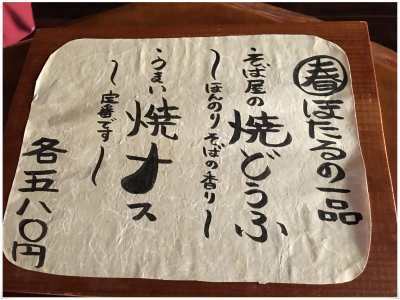 春 ほたるの一品
そば屋の焼どうふ
～ほんのりそばの香り～
うまい焼ナス
～定番です～
各五八〇円